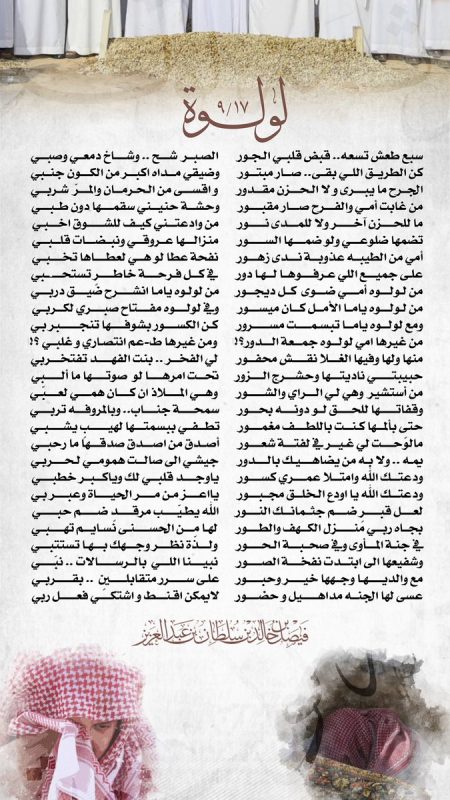 لولوة
٩/١٧
سبع طعش تسعه.. قبض قلبي الجور الصبر شح .. وشاخ دمعي وصبي
كن الطريق اللي بقى.. صار مبتور وضيقي مداه اكبر من الكون جنبي
الجرح ما يبرى ولا الحزن مقدور واقسى من الحرمان والمر شربي
من غابت أمي والفرح صار مقبور وحشة حنيني سقمها دون طبي
ما للحزن آخر ولا للمدى نور من وادعتني كيف للشوق اخبي
تضمها ضلوعي ولو ضمها السور منزالها عروقي ونبضات قلبي
أمي من الطيبه عذوبة ندى زهور نفحة عطا لو هي لعطاها تخبي
على جميع اللي عرفوها لها دور في كل فرحة خاطر تستحبي
من لولوه أمي ضوى كل ديجور من لولوه ياما انشرح ضيق دربي
من لولوه ياما الأمل كان ميسور وفي لولوه مفتاح صبري لكربي
ومع لولوه ياما تبسمت مسرور كن الكسور بشوفها تنجبر بي
من غيرها امي لولوه جمعة الدور؟! ومن غيرها طعم انتصاري و غلبي ؟!
منها ولها وفيها الغلا نقش محفور لي الفخر .. بنت الفهد تفتخر بي
حبيبتي ناديتها وحشرج الزور تحت امرها لو صوتها ما ألبي
من أستشير وهي لي الراي والشور وهي الملاذ ان كان همي لعبي
وقفاتها للحق لو دونه بحور سمحة جناب.. وبالمروفه تربي
حتى بألمها كنت باللطف مغمور تطفي ببسمتها لهيب يشبي
مالوحت لي غير في لفتة شعور أصدق من اصدق صدقها ما رحبي
يمه .. ولا به من يضاهيك بالدور جيشي الى صالت همومي لحربي
ودعتك الله وامتلا عمري كسور ياوجد قلبي لك وياكبر خطبي
ودعتك الله يا اودع الخلق مجبور يااعز من مر الحياة وعبر بي
لعل قبر ضم جثمانك النور الله يطيب مرقد ضم حبي
بجاه ربي منزل الكهف والطور لها من الحسنى نسايم تهبي
في جنة المأوى وفي صحبة الحور ولذة نظر وجهك بها تستتبي
وشفيعها الى ابتدت نفخة الصور نبينا اللي بالرسالات .. نبي
مع والديها وجهها خير وحبور على سرر متقابلين .. بقربي
عسى لها الجنه مداهيل و حضور لايمكن اقنط و اشتكي فعل ربي
فيصل بن خالد بن سلطان بن عبدالعزيز